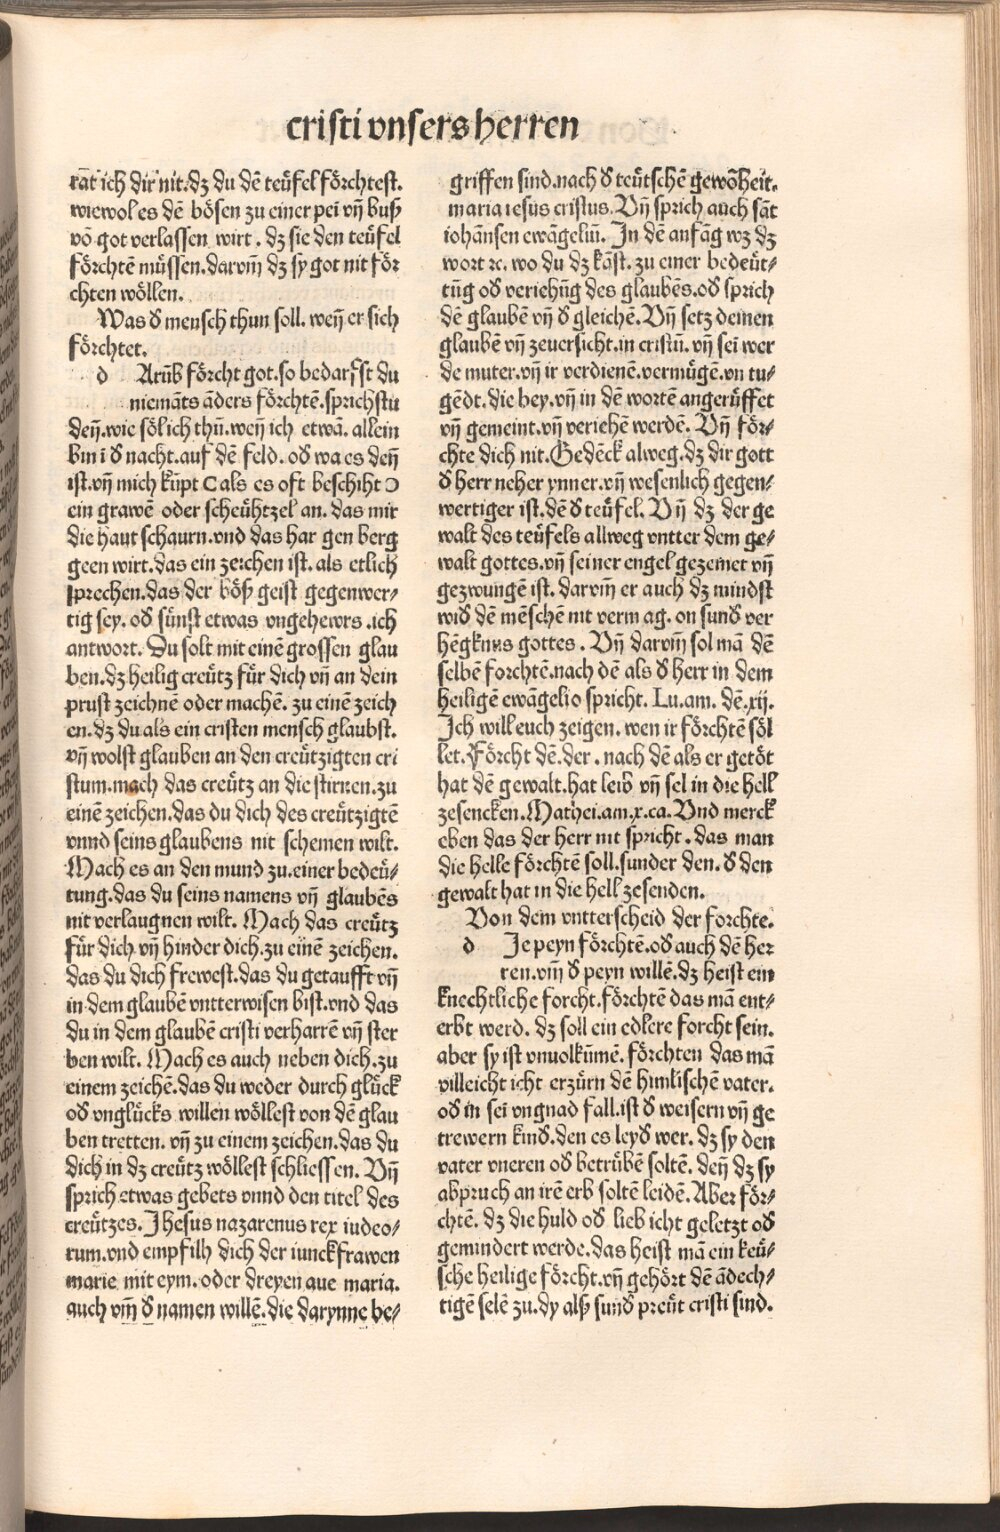 cristi vnsers herren
rat ich dir nit.dz du dē teüfel förchtest.
wiewol es dē bösen zu einer pei vn̄ buß
vō got verlassen wirt. dz sie den teüfel
förchtē müssen.darvm̄ dz sy got nit för
chten wöllen.
Was d mensch thun soll. wen̄ er sich
förchtet.
d Arūb förcht got.so bedarfst du
niemāts āders förchtē.sprichstu
den̄.wie sölich thū.wen̄ ich etwā. allein
bin ī d nacht.auf dē feld. od wa es den̄
ist.vn̄ mich kūpt (als es oft beschiht)
ein grawē oder scheühtzel an. das mir
die haut schaurn.vnd das har gen berg
geen wirt.das ein zeichen ist.als etlich
sprechen.das der böß geist gegenwer-
tig sey. od sünst etwas vngehewrs .ich
antwort. Du solt mit einē grossen glau
ben.dz heilig creütz für dich vn̄ an dein
prust zeichnē oder machē. zu einē zeich
en.dz du als ein cristen mensch glaubst.
vn̄ wolst glauben an den creützigten cri
stum.mach das creütz an die stirnen.zu
einē zeichen.das du dich des creützigtē
vnnd seins glaubens nit schemen wilt.
Mach es an den mund zu.einer bedeü-
tung.das du seins namens vn̄ glaubēs
nit verlaugnen wilt. Mach das creütz
für dich.vn̄ hinder dich.zu einē zeichen.
das du dich frewest.das du getaufft vn̄
in dem glaubē vntterwisen bist.vnd das
du in dem glaubē cristi verharrē vn̄ ster
ben wilt. Mach es auch neben dich.zu
einem zeichē.das du weder durch glück
od vnglücks willen wöllest von dē glau
ben tretten. vn̄ zu einem zeichen.das du
dich in dz creütz wöllest schliessen. Vn̄
sprich etwas gebets vnnd den titel des
creützes. Jhesus nazarenus rex iudeo-
rum.vnd empfilh dich der iunckfrawen
marie mit eym.oder dreyen aue maria.
auch vm̄ d namen willē.die darynne be-
griffen sind.nach d teütschē gewōheit.
maria iesus cristus. Vn̄ sprich auch sāt
iohānsen ewāgeliū. In dē anfāg wz dz
wort ꝛc. wo du dz kāst. zu einer bedeüt-
tūg od veriehūg des glaubēs.od sprich
dē glaubē vn̄ d gleichē. Vn̄ setz deinen
glaubē vn̄ zeuersicht.in cristū. vn̄ sei wer
de muter.vn̄ ir verdienē.vermügē.vn tu-
gēdt. die bey.vn̄ in dē wortē angerüffet
vn̄ gemeint.vn̄ veriehē werdē. Vn̄ för-
chte dich nit.Gedēck alweg.dz dir gott
d herr neher ynner.vn̄ wesenlich gegen-
wertiger ist.dē d teüfel. Vn̄ dz der ge
walt des teüfels allweg vntter dem ge-
walt gottes.vn̄ seiner engel gezemet vn̄
gezwungē ist. darvm̄ er auch dz mindst
wid dē mēschē nit verm ag. on sund ver
hēgknus gottes. Vn̄ darvm̄ sol mā dē
selbē forchtē.nach dē als d herr in dem
heiligē ewāgelio spricht. Lu.am. dē.xij.
Ich will euch zeigen. wen ir förchtē söl
let.Förcht dē.der. nach dē als er getöt
hat dē gewalt.hat leib vn̄ sel in die hell
zesencken.Mathei.am.x.ca. Vnd merck
eben das der herr nit spricht. das man
die helle förchtē soll.sunder den. d den
gewalt hat in die hell zesenden.
Von dem vntterscheid der forchte.
d Je peyn förchtē.od auch dē her
ren.vm̄ d peyn willē.dz heist ein
knechtliche forcht.förchtē das mā ent-
erbt werd. dz soll ein edlere forcht sein.
aber sy ist vnuolkūmē. förchten das mā
villeicht icht erzürn dē himlischē vater.
od in sei vngnad fall.ist d weisern vn̄ ge
trewern kind.den es leyd wer. dz sy den
vater vneren od betrübē soltē. den̄ dz sy
abpruch an irē erb soltē leidē. Aber för-
chtē. dz die huld od lieb icht geletzt od
gemindert werde.das heist mā ein keü-
sche heilige förcht.vn̄ gehört dē ādech-
tigē selē zu.dy alß sund preüt cristi sind.